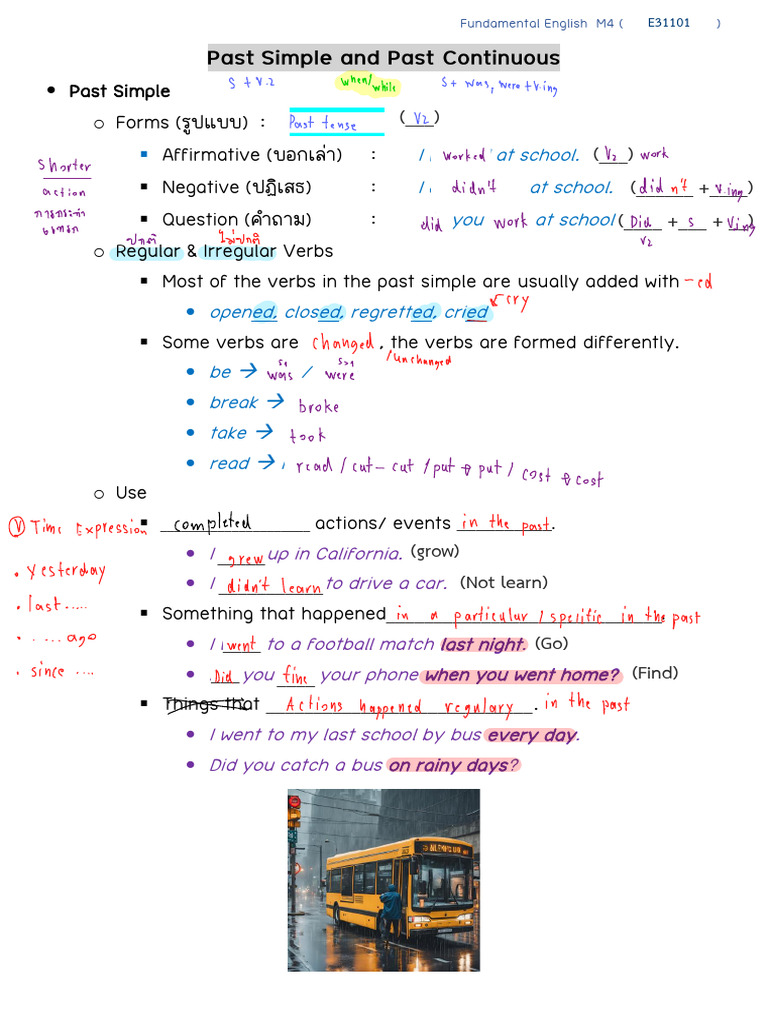 Fundamental English M4 ( E31101 )
Past Simple and Past Continuous
S + V.2 when/while S + was, were + V.ing
• Past Simple
o Forms (รูปแบบ) : Past tense (V2)
▪ Affirmative (บอกเล่า) : I worked at school. (V2) work
Shorter action
▪ Negative (ปฏิเสธ) : I didn't at school. (didn't + V.ing)
การกระทำ
▪ Question (คำถาม) : did you work at school (Did + s + Ving)
V2
ปกติ ไม่ปกติ
o Regular & Irregular Verbs
▪ Most of the verbs in the past simple are usually added with -ed
• opened, closed, regretted, cried cry
▪ Some verbs are changed, the verbs are formed differently.
/unchanged
• be → was / were
• break → broke
• take → took
• read → read / cut - cut / put → put / cost → cost
o Use
Time Expression
▪ completed actions/ events in the past.
• I grew up in California. (grow)
• yesterday
• I didn't learn to drive a car. (Not learn)
• last .....
▪ Something that happened in a particular / specific in the past
• .... ago
• I went to a football match last night. (Go)
• since ....
• Did you fine your phone when you went home? (Find)
▪ Things that Actions happened regulary. in the past
• I went to my last school by bus every day.
• Did you catch a bus on rainy days?